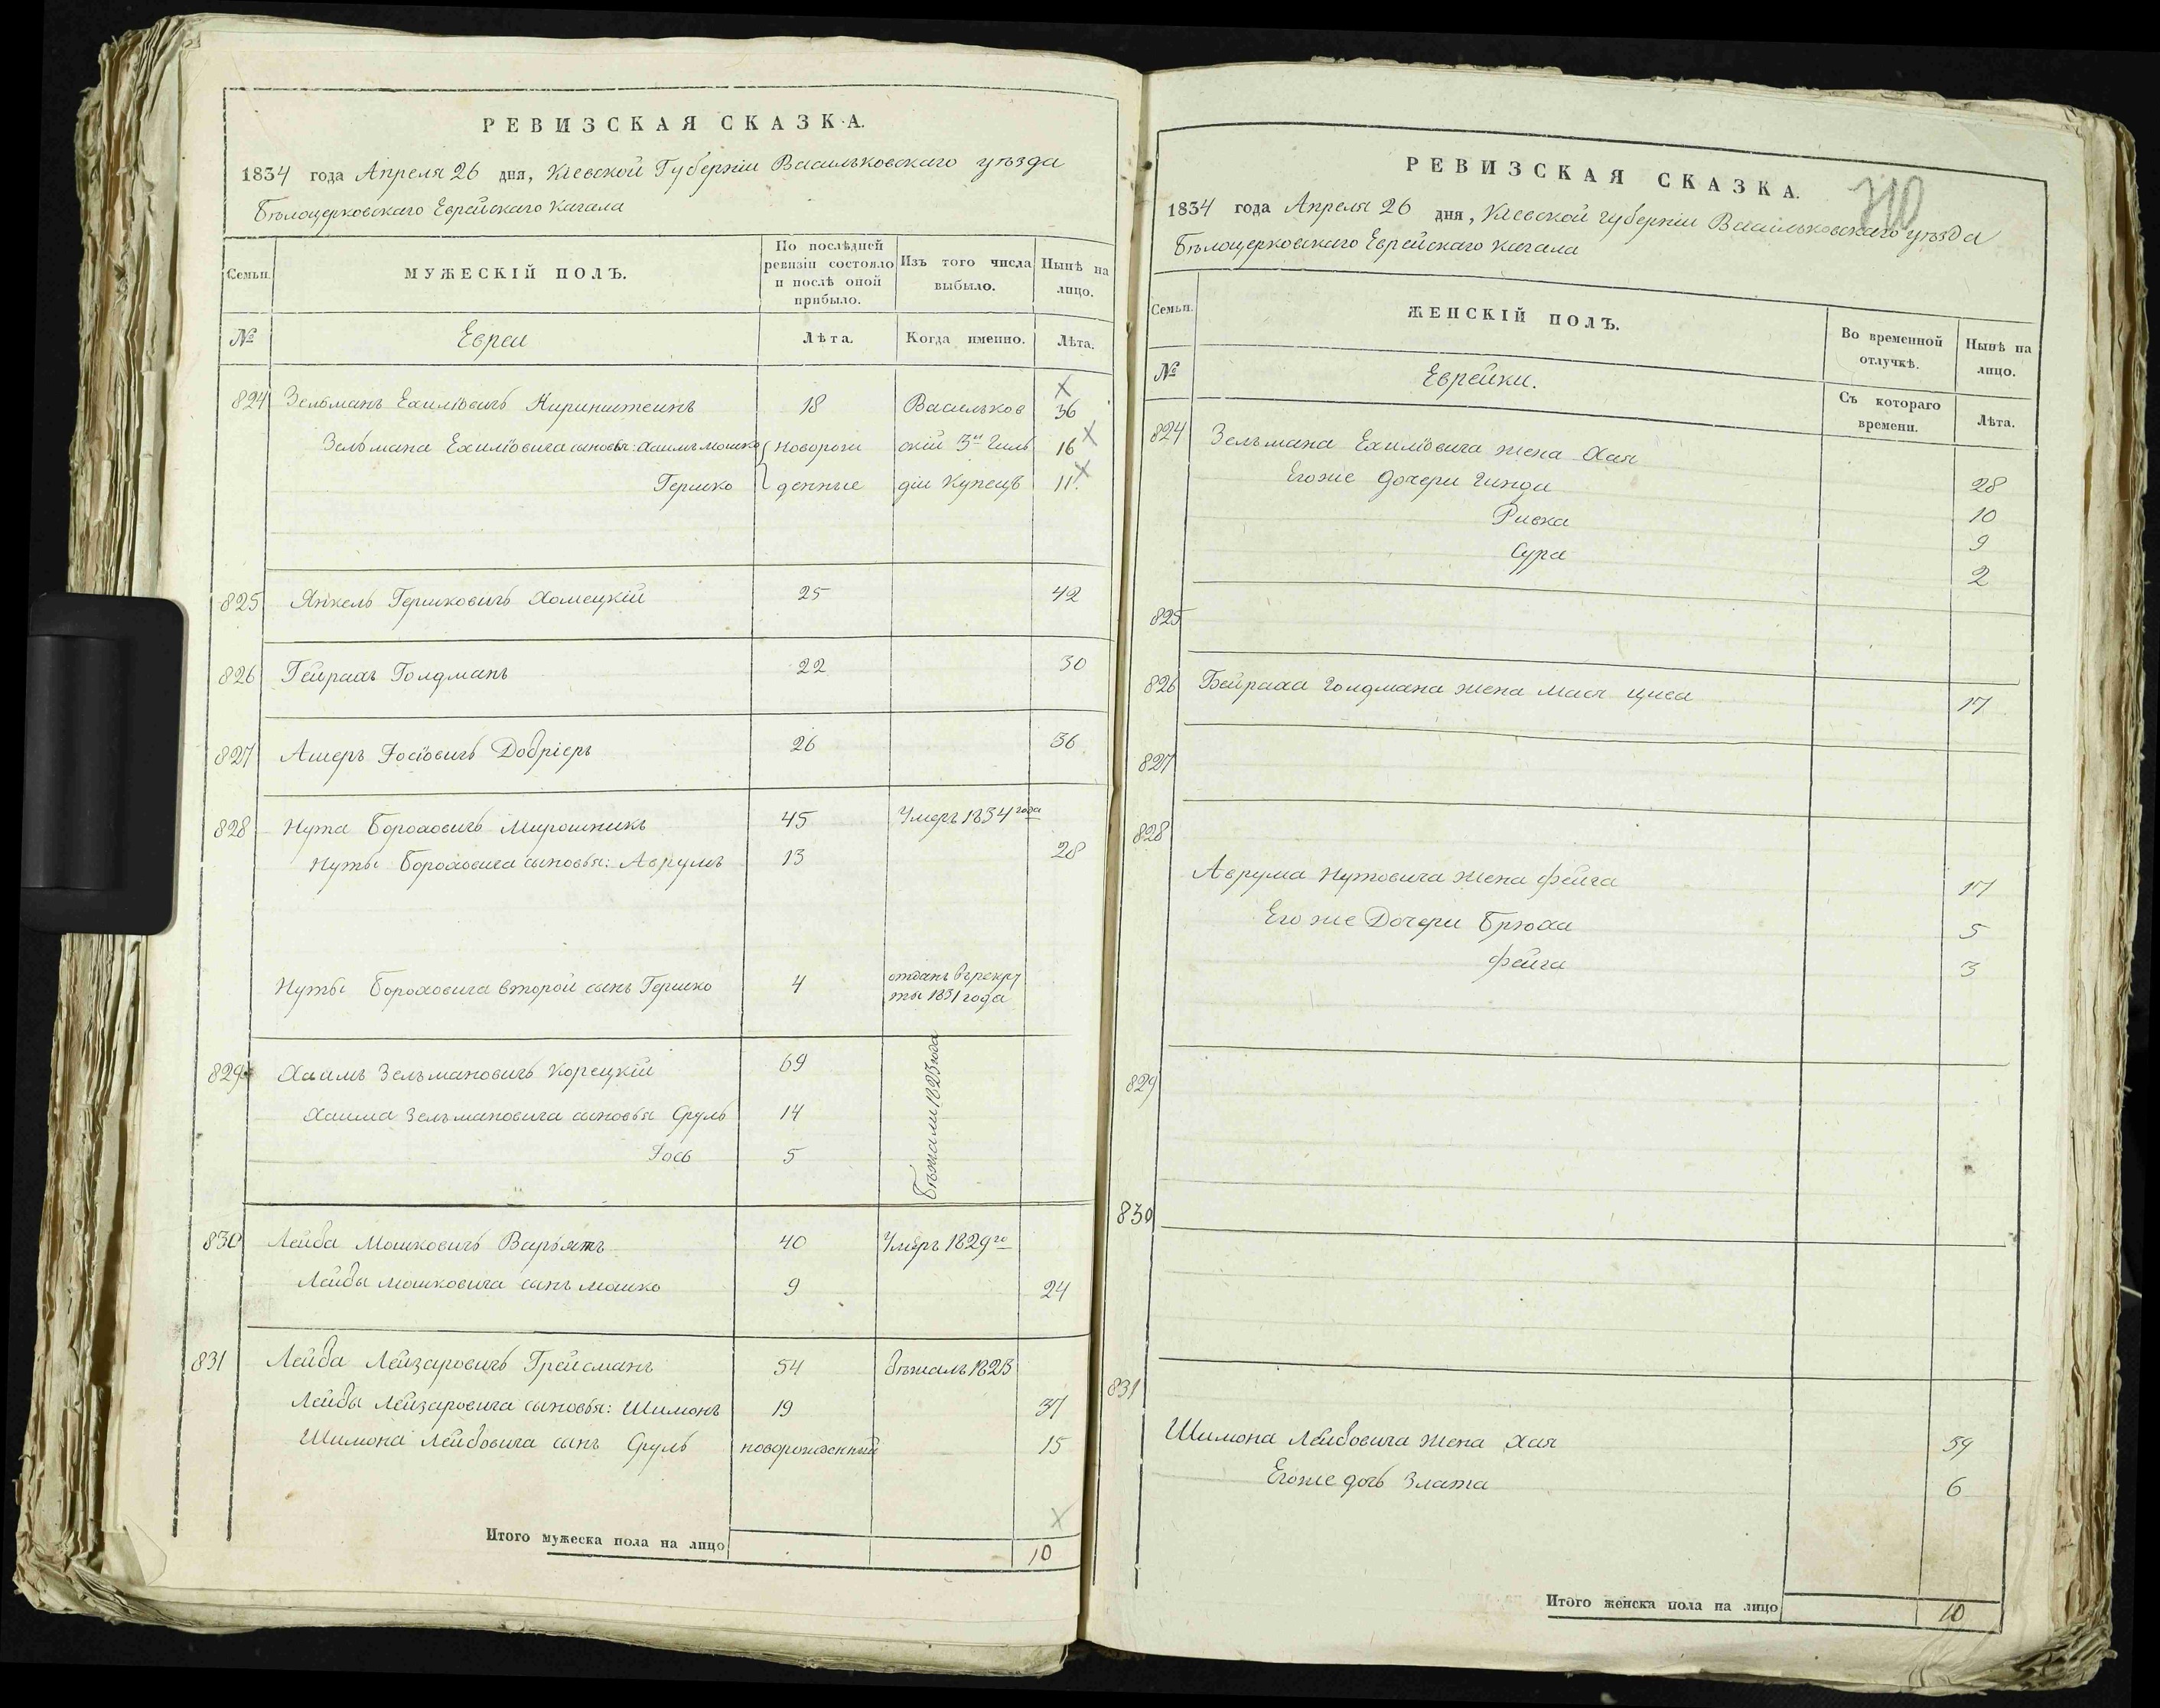 РЕВИЗСКАЯ СКАЗКА.
1834 года Апреля 26 дня, Кіевской Губерніи Васильковскаго уѣзда
Бѣлоцерковскаго Еврейскаго Кагала
Семьи.
МУЖЕСКІЙ ПОЛЪ.
По послѣдней ревизіи состояло и послѣ оной прибыло.
Изъ того числа выбыло.
Нынѣ на лицо.
№
Евреи
Лѣта.
Когда именно.
Лѣта.
824 Зельманъ Ехиліовичъ 18 Васильков 36
Зельмана Ехиліовича сыновья: Хаимъ Мошко новорож скій 3й Гиль 16
Гершко денные діи Купецъ 11
825 Янкель Гершковичъ Хомецкій 25 42
826 Гейрахъ Голдманъ 22 30
827 Ашеръ Іосіовичъ Добріеръ 26 36
828 Нута Бороховичъ Мирошникъ 45 Умеръ 1834 года
Нуты Бороховича сыновья: Аврумъ 13 28
Нуты Бороховича второй сынъ Гершко 4 отданъ въ рекру
ты 1831 года
829 Хаимъ Зельмановичъ Корецкій 69 Бѣжали 1823 года
Хаима Зельмановича сыновья Сруль 14
Іось 5
830 Лейба Мошковичъ 40 Умеръ 1829 го
Лейбы Мошковича сынъ Мошко 9 24
831 Лейба Лейзаровичъ Грейсманъ 54 бѣжалъ 1823
Лейбы Лейзаровича сыновья: Шимонъ 19 37
Шимона Лейбовича сынъ Сруль новорожденный 15
Итого мужеска пола на лицо 10
РЕВИЗСКАЯ СКАЗКА.
1834 года Апреля 26 дня, Кіевской губерніи Васильковскаго уѣзда
Бѣлоцерковскаго Еврейскаго Кагала
Семьи.
ЖЕНСКІЙ ПОЛЪ.
Во временной отлучкѣ.
Нынѣ на лицо.
№
Еврейки.
Съ котораго времени.
Лѣта.
824 Зельмана Ехиліовича жена Хая 28
Его же дочери Гинда 10
Ривка 9
Сура 2
825
826 Бейраха Голдмана жена Мася 17
827
828
Аврума Нутовича жена Фейга 17
Его же Дочери Брюха 5
Фейга 3
829
830
831
Шимона Лейбовича жена Хая 39
Его же дочь Злата 6
Итого женска пола на лицо 10